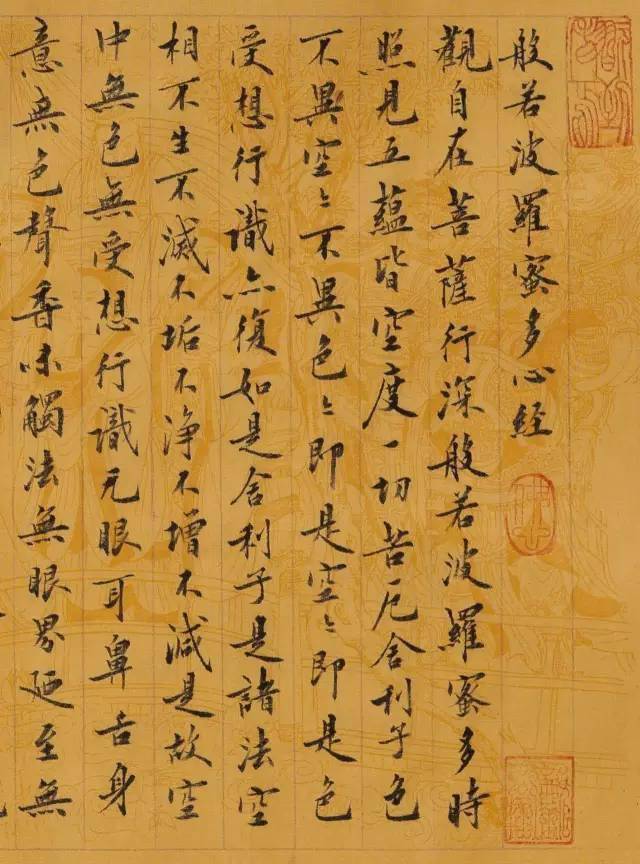 般若波羅蜜多心経
觀自在菩薩行深般若波羅蜜多時
照見五蘊皆空度一切苦厄舍利子色
不異空〻不異色〻即是空〻即是色
受想行識亦復如是舍利子是諸法空
相不生不滅不垢不淨不增不減是故空
中無色無受想行識无眼耳鼻舌身
意無色聲香味觸法無眼界廼至無